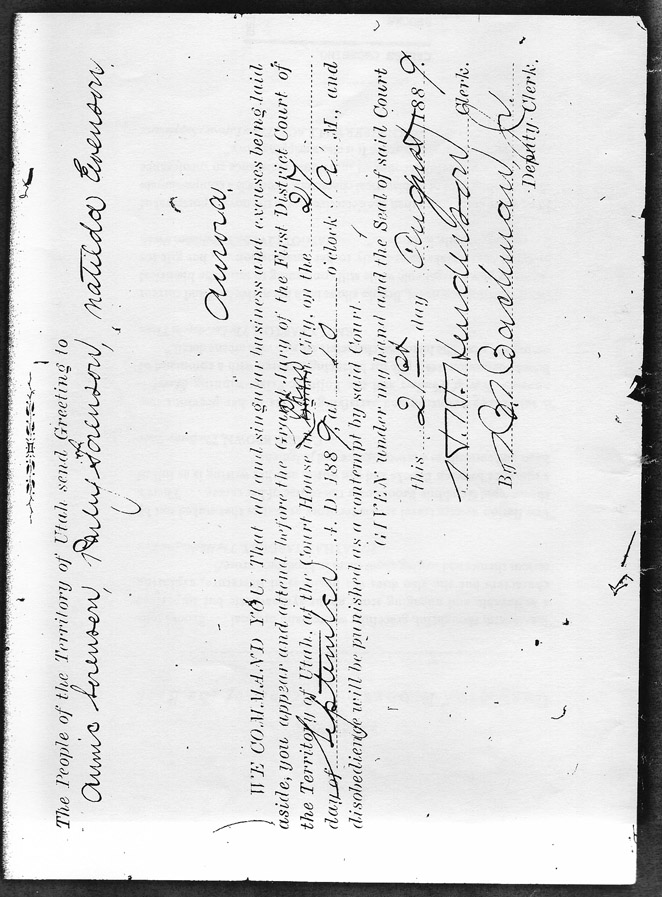 The People of the Territory of Utah send Greeting to
Annie Sorensen, Parley Sorenson, Matilda Evenson.
Aurora.
WE COMMAND YOU, That all and singular business and excuses being laid
aside, you appear and attend before the Grand Jury of the First District Court of
the Territory of Utah, at the Court House in City, on the 24
day of September A. D. 1889, at 10 o'clock A. M., and
disobedience will be punished as a contempt by said Court
GIVEN under my hand and the Seal of said Court
this 21st day August 1889.
H. H. Henderson Clerk.
By Bachman Jr. Deputy Clerk.